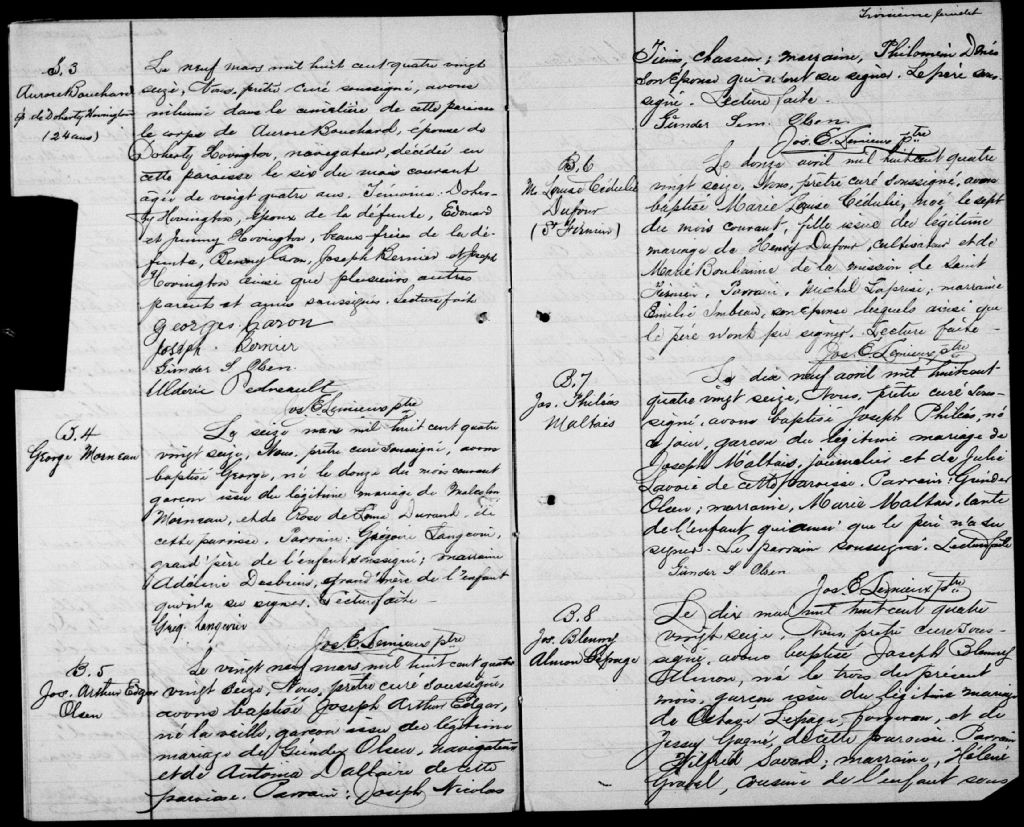 S. 3
Aurore Bouchard
ép. de Doherty Hovington
(24 ans)
Le neuf mars mil huit cent quatre vingt
seize, Nous, prêtre curé soussigné, avons
inhumé dans le cimetière de cette paroisse
le corps de Aurore Bouchard, épouse de
Doherty Hovington, navigateur, décédée en
cette paroisse le six du mois courant
agée de vingt quatre ans. Témoins: Doher-
ty Hovington, époux de la défunte, Edouard
et Jimmy Hovington, beaux frères de la dé-
funte, Caron, Joseph Bernier et Joseph
Hovington ainsi que plusieurs autres
parents et amis soussignés. Lecture faite
Georges Caron
Joseph Bernier
Günder S Olsen
Ulderic Pedneault
Jos E Lemieux ptre
B. 4
George Morneau
Le seize mars mil huit cent quatre
vingt seize, Nous, prêtre curé soussigné, avons
baptisé George, né le douze du mois courant
garçon issu du légitime mariage de Malcolm
Morneau, et de Rose de Lima Durand, de
cette paroisse. Parrain: Grégoire Langevin,
grand'père de l'enfant soussigné; marraine
Adeline Desbiens, grand'mère de l'enfant
qui n'a su signer. Lecture faite
Greg. Langevin
Jos E. Lemieux ptre
B. 5
Jos. Arthur Edgar
Olsen
Le vingt neuf mars, mil huit cent quatre
vingt seize, Nous, prêtre curé soussigné,
avons baptisé Joseph Arthur Edgar,
né la veille, garçon issu du légitime
mariage de Gunder Olsen, navigateur
et de Antonia Dallaire de cette
paroisse. Parrain: Joseph Nicolas
Troisième feuillet
chasseur; marraine, Philomène Denis
son épouse qui n'ont su signer. Le père sous-
signé. Lecture faite.
Günder Sem. Olsen.
Jos. E. Lemieux ptre
B. 6
M. Louise Cédulie
Dufour
(St Firmin)
Le douze avril mil huit cent quatre
vingt seize, Nous, prêtre curé soussigné, avons
baptisé Marie Louise Cédulie, née le sept
du mois courant, fille issue du légitime
mariage de Henry Dufour, cultivateur et de
Marie Boulianne de la mission de Saint
Firmin. Parrain, Michel Laprise; marraine
Emilie Imbeau, son épouse lesquels ainsi que
le père n'ont pu signer. Lecture faite
Jos E. Lemieux ptre
B. 7
Jos. Philéas
Maltais
Le dix neuf avril mil huit cent
quatre vingt seize, Nous, prêtre curé sous-
signé, avons baptisé Joseph Philéas, né
ce jour, garçon du légitime mariage de
Joseph Maltais, journalier et de Julie
Savoie de cette paroisse. Parrain: Gunder
Olsen; marraine, Marie Maltais, tante
de l'enfant qui ainsi que le père n'a su
signer. Le parrain soussigné. Lecture faite
Günder S Olsen
Jos. E Lemieux ptre
B. 8
Jos. Blenny
Almon Lepage
Le dix mai mil huit cent quatre
vingt seize, Nous, prêtre curé sous-
signé, avons baptisé Joseph Blenny
Almon, né le trois du présent
mois, garçon issu du légitime mariage
de Octave Lepage, forgeron, et de
Jessey Gagné, de cette paroisse. Parrain
Wilfred Savard; marraine, Hélène
Gravel, cousine de l'enfant sous